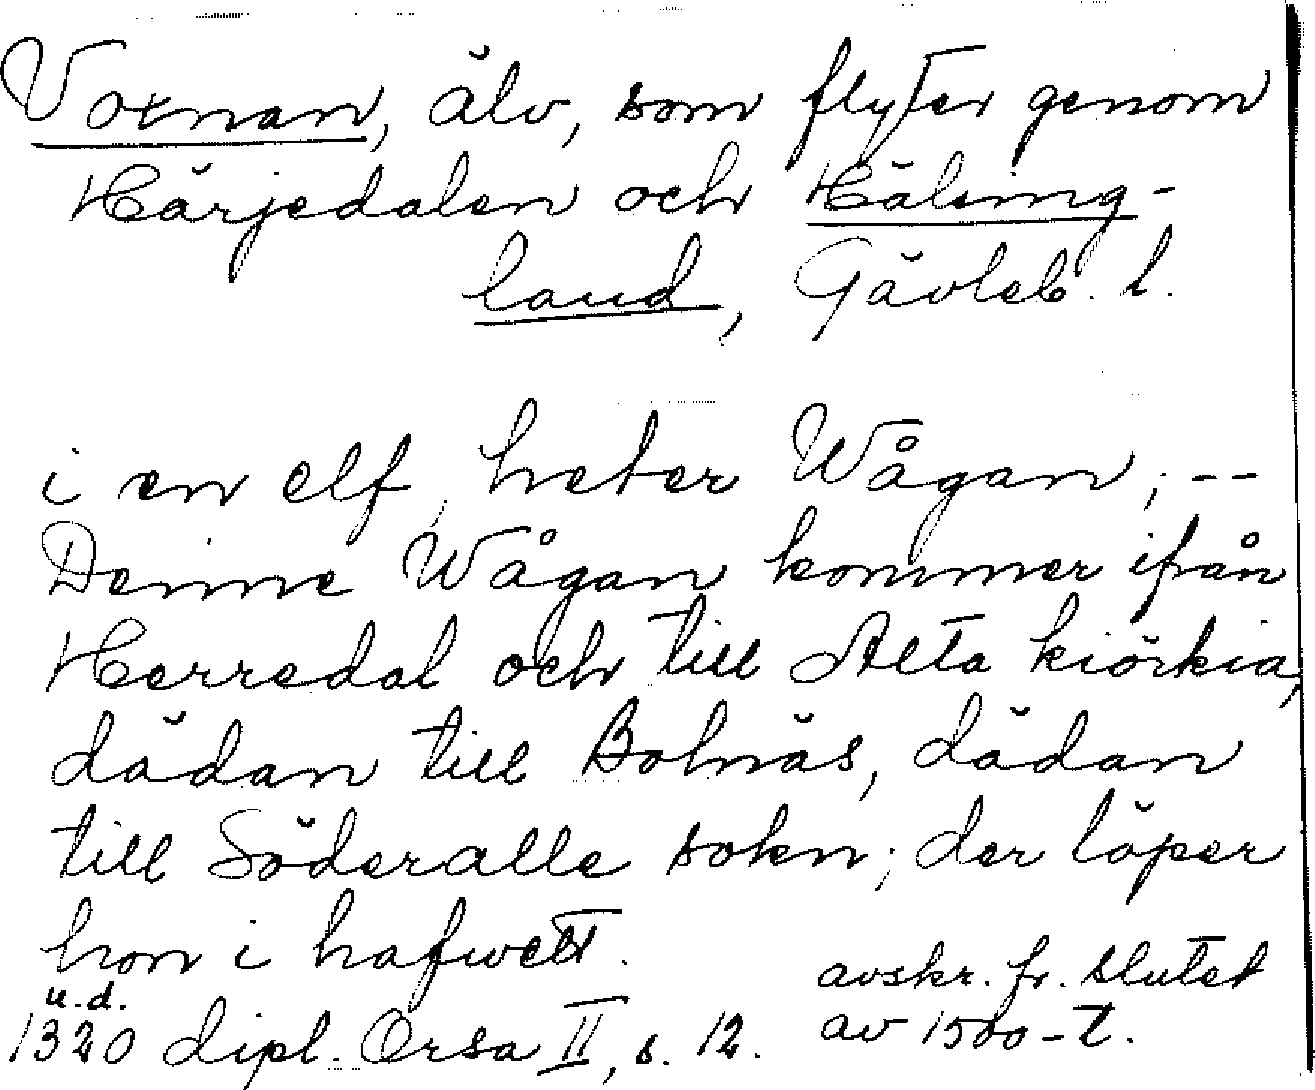 Voxnan, älv, som flyter genom
Härjedalen och Hälsing-
land, Gävleb. l.
i en elf, heter Wågan; --
Denne Wågan kommer ifrån
Herredal och till Alfta kiörkia,
dädan till Bolnäs, dädan
till Söderalle sokn; der löper
hon i hafwett.
u.d.
1320 dipl. Orsa II, s. 12.
avskr. fr. slutet
av 1500-t.